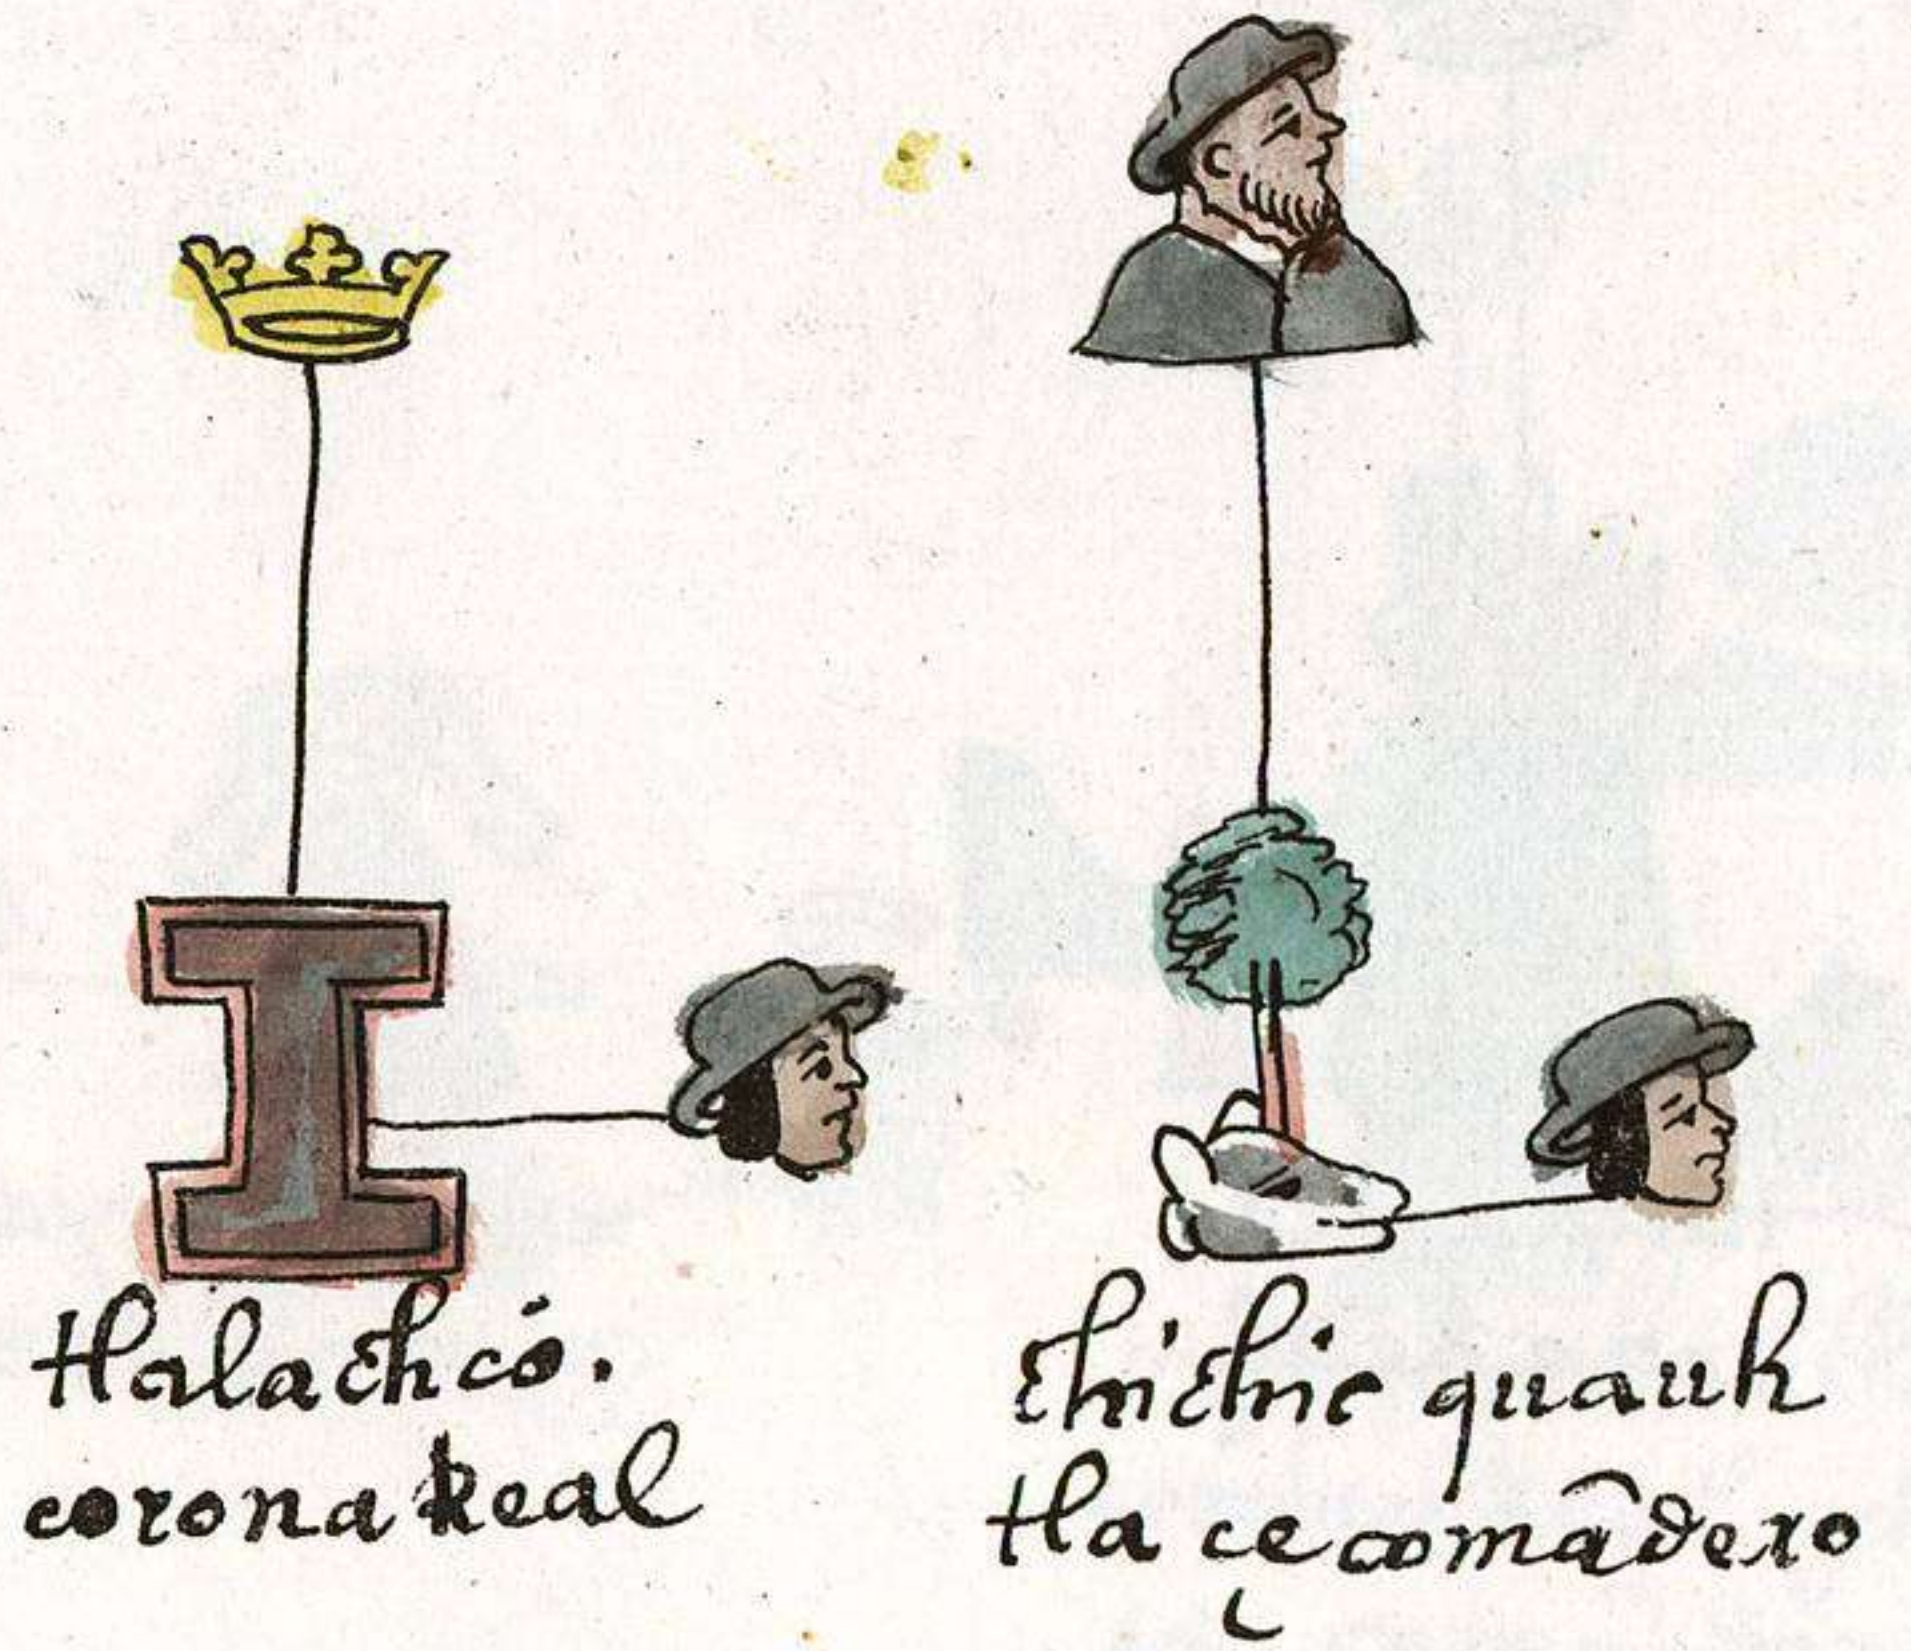 tlalachcō.
corona Real
chichic quauh
tla çecomādero